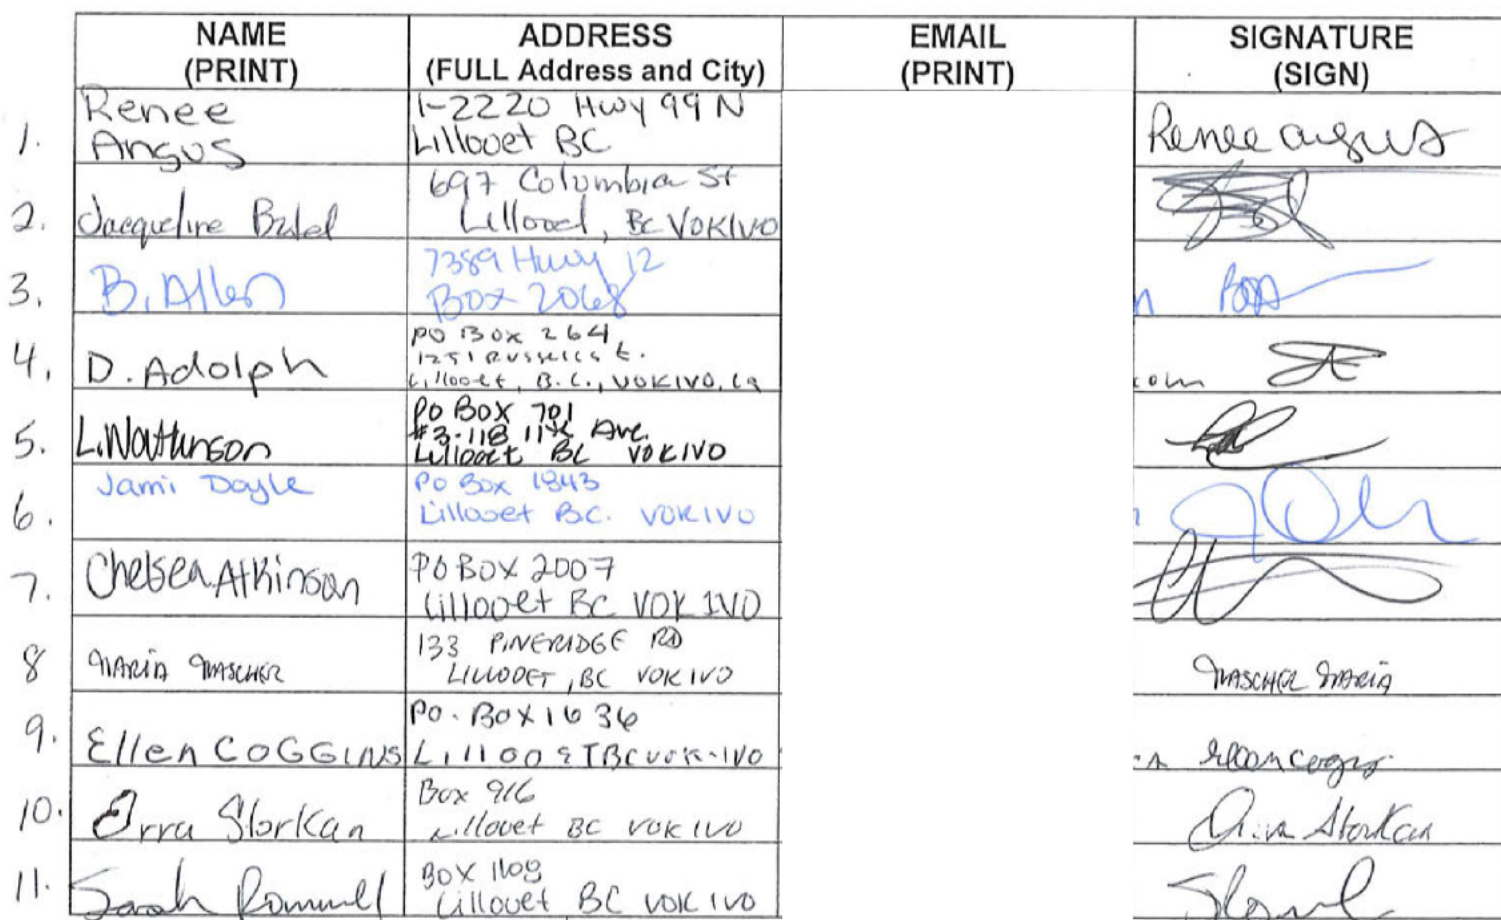 NAME (PRINT) ADDRESS (FULL Address and City) EMAIL (PRINT) SIGNATURE (SIGN)
1. Renee Angus 1-2220 Hwy 99 N Lillooet BC Renee Angus
2. Jacqueline 697 Columbia St Lillooet, BC V0K1V0
3. B. Allen 7389 Hwy 12 Box 2068
4. D. Adolph PO Box 264, Lillooet, B.C., V0K1V0, com
5. L. Watkinson PO Box 701 #3-118 11th Ave. Lillooet BC V0K1V0
6. Jami Doyle PO Box 1843 Lillooet BC. V0K1V0
7. Chelsea Atkinson PO BOX 2007 Lillooet BC V0K 1V0
8 MARIA MASCHER 133 PINERIDGE RD LILLOOET, BC V0K1V0 MASCHER MARIA
9. Ellen COGGINS PO. BOX 1636 LillooeT BC V0K-1V0 Ellen
10. Storkan Box 916 Lillooet BC V0K 1V0 Storkan
11. Sarah Rommel Box 1108 Lillooet BC V0K 1V0